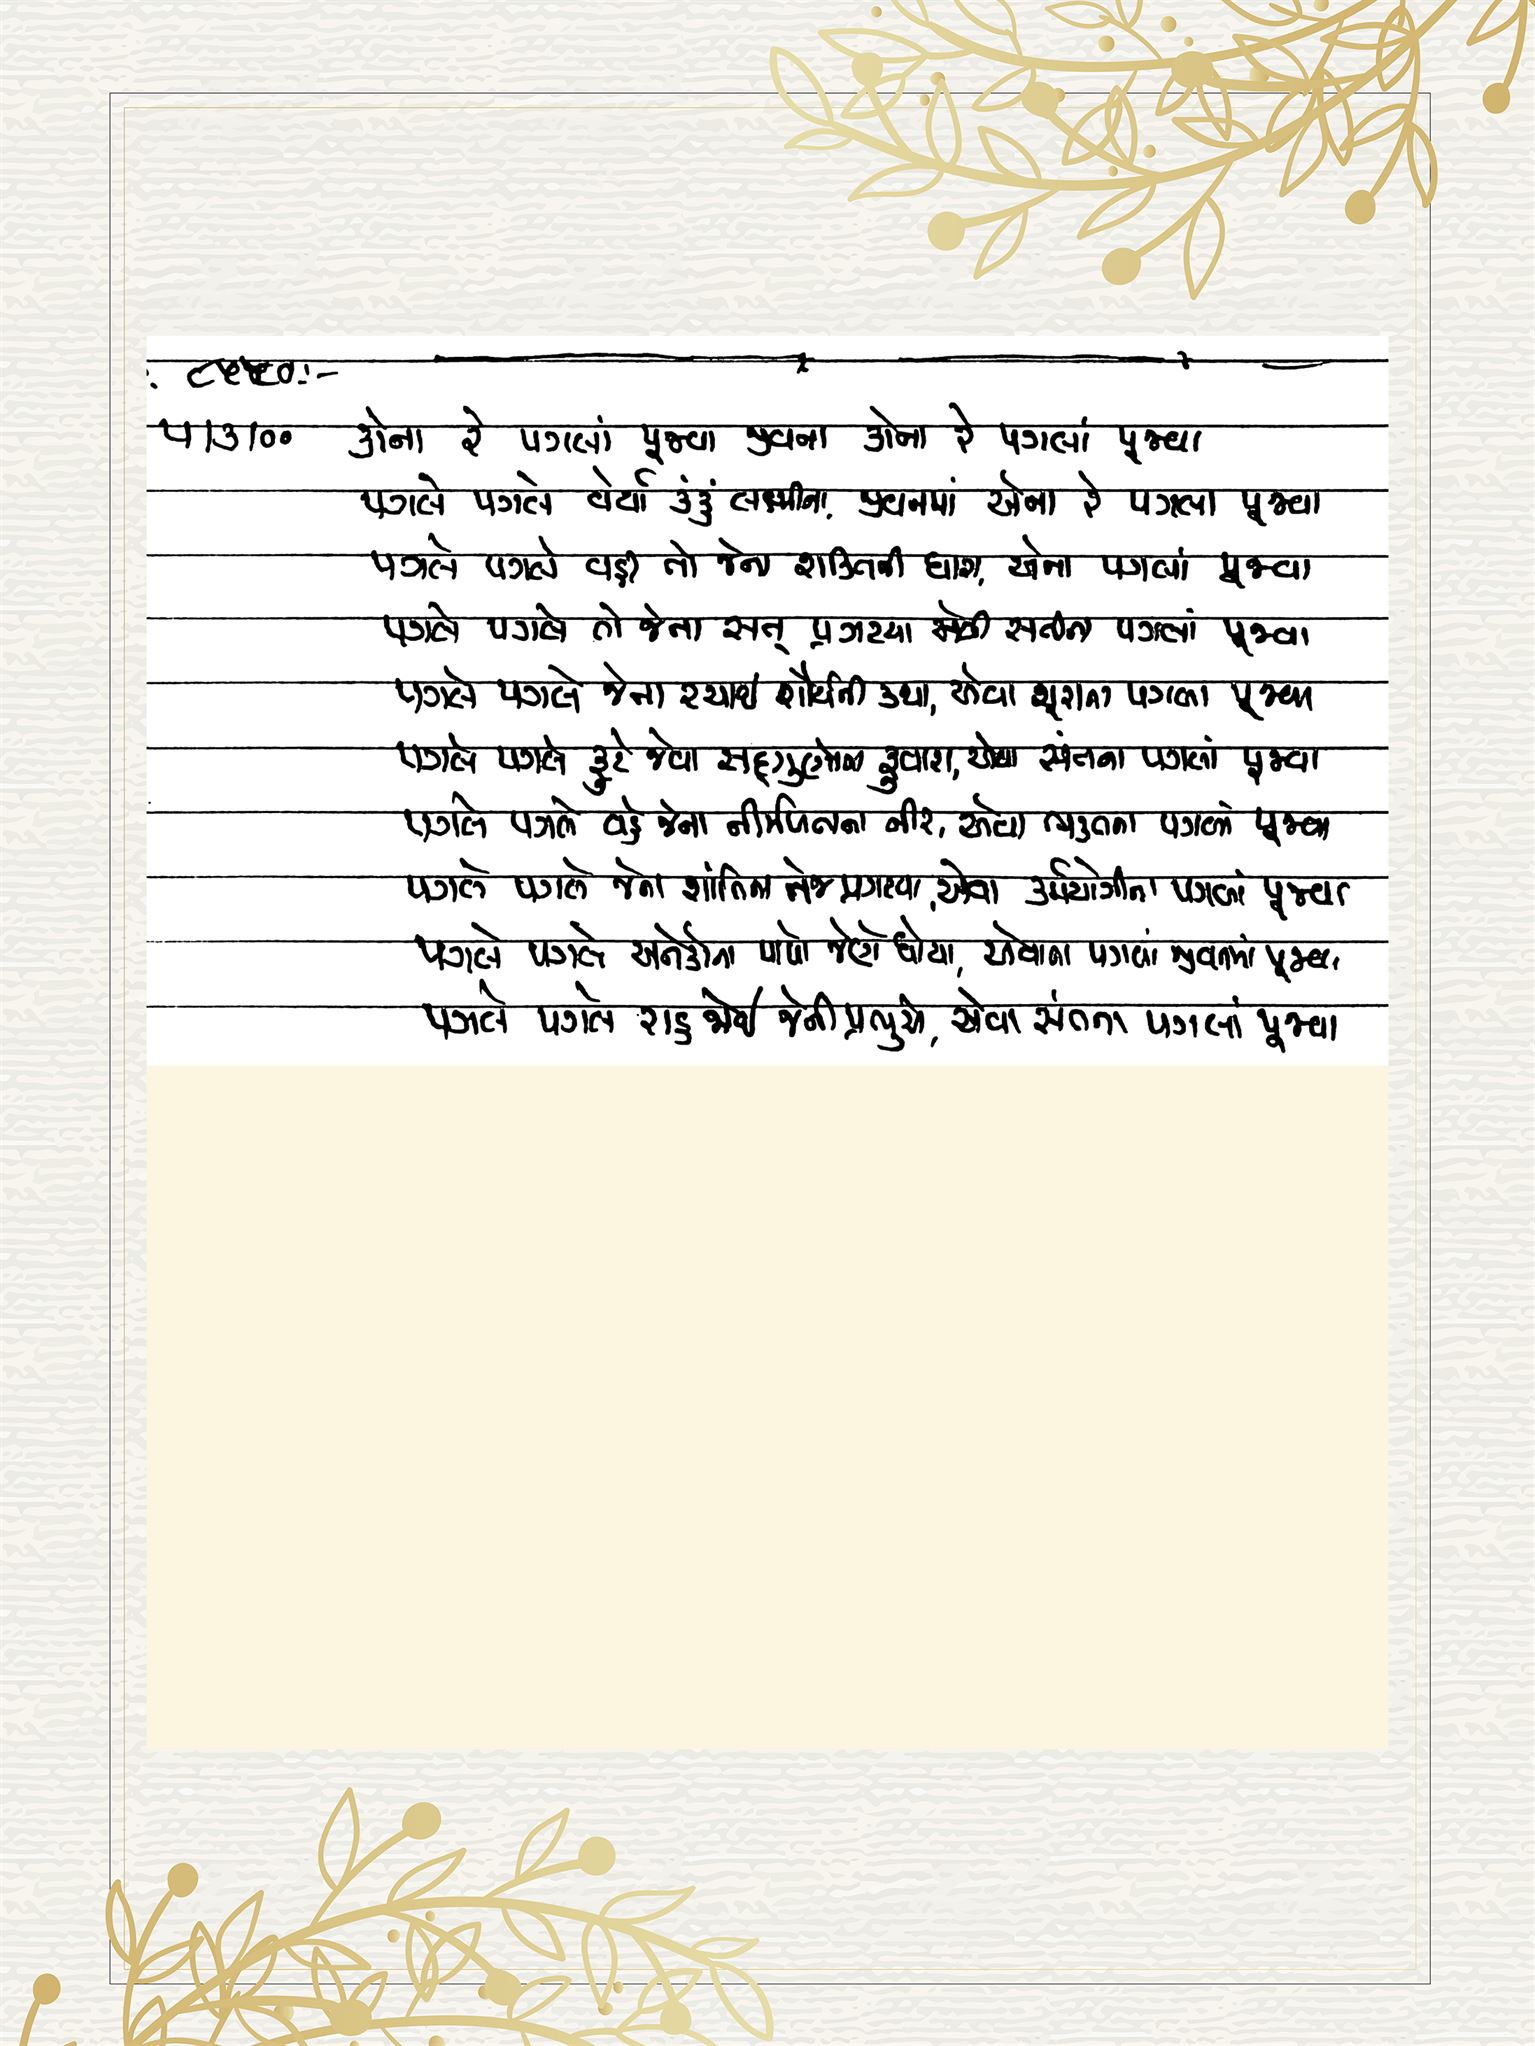 ૫।૩।૦૦ કોના રે પગલાં પૂજ્યા જીવને કોના રે પગલાં પૂજ્યા
પગલે પગલે વેર્યા કંકું લક્ષ્મીના, જીવનમાં એના રે પગલા પૂજ્યા
પગલે પગલે વહી તો જેના શક્તિની ધારા, એના પગલાં પૂજ્યા
પગલે પગલે તો જેના સત્ પ્રગટયા એવી સતીના પગલાં પૂજ્યા
પગલે પગલે જેના રચાઈ શૌર્યની કથા, એવા શૂરાના પગલા પૂજ્યા
પગલે પગલે ફુટે જેવા સદ્ગુણોના ફુવારા, એવા સંતના પગલાં પૂજ્યા
પગલે પગલે વહે જેના નીર્મળતાના નીર, એવા ભક્તના પગલાં પૂજ્યા
પગલે પગલે જેના શાંતિના તેજ પ્રગટયા, એવા કર્મયોગીના પગલાં પૂજ્યા
પગલે પગલે અનેકોના પાપો જેણે ધોયા, એવાના પગલાં જીવનમાં પૂજ્યા
પગલે પગલે રાહ જોઈ જેની પ્રભુએ, એવા સંતના પગલાં પૂજ્યા